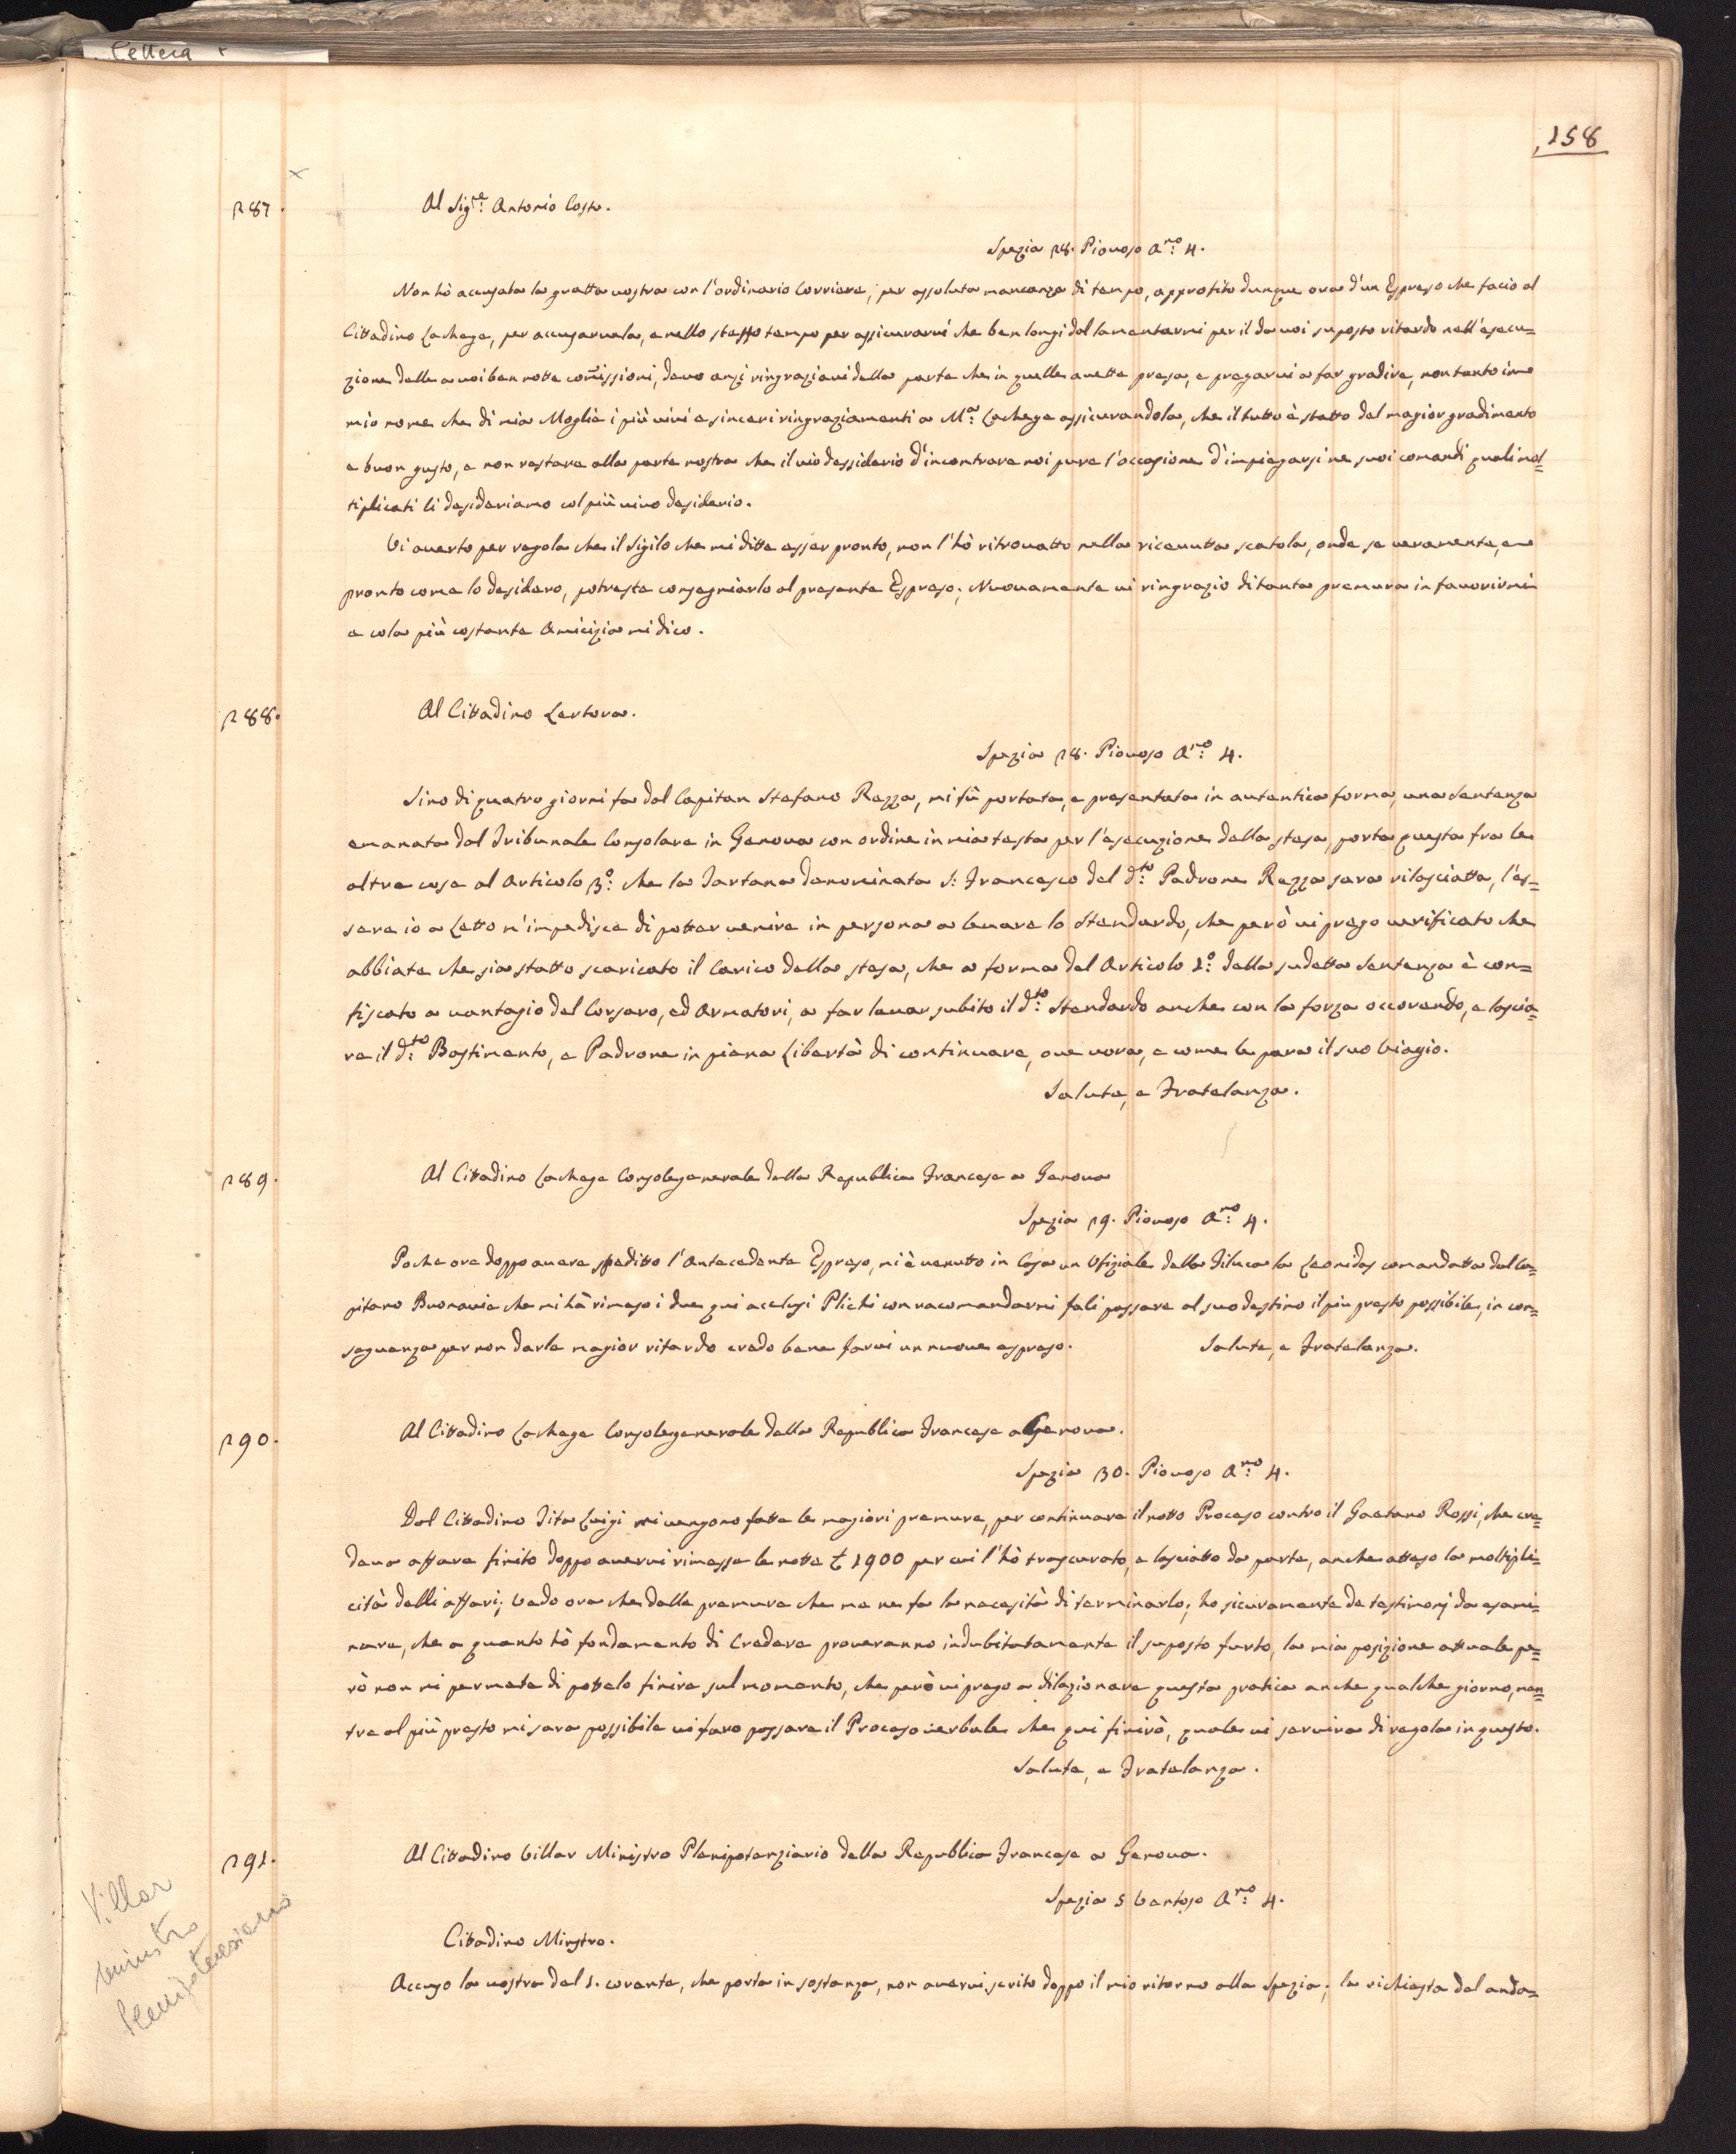 Lettera
158
287.
Al Sig:re Antonio Costa.
Spezia 28. Piovoso A:no 4.
Non hò accusata la gratta vostra con l'ordinario Corriere, per assoluta mancanza di tempo, approfito dunque ora d'un Espreso che facio al
Cittadino Lachege, per accusarvela, e nello stesso tempo per assicurarvi che ben longi dal lamentarmi per il da voi suposto ritardo nell'esecu=
zione delle a voi ben notte comissioni, devo anzi ringraziavi della parte che in quelle avette presa, e pregarvi a far gradire, non tanto in
mio nome che di mia Moglie i più vivi e sinceri ringraziamenti a M:a Lachege assicurandola, che il tutto è statto del magior gradimento
e buon gusto, e non restare alla parte nostra che il vio dessiderio d'incontrare noi pure l'occasione d'impiegarsi ne suoi comandi quali mol=
tiplicati li desideriamo col più vivo desiderio.
Vi averto per regola che il Sigilo che mi ditte esser pronto, non l'hò ritrovatto nella ricevutta scatola, onde se veramente, e
pronto come lo desidero, potreste consegniarlo al presente Espreso; Nuovamente vi ringrazio di tanta premura in favorirmi
e cola più costante Amicizia mi dico.
288.
Al Cittadino Lertora.
Spezia 28. Piovoso A:no 4.
Sino di quatro giorni fa dal Capitan Stefano Razza, mi fù portata, e presentata in autentica forma, una Sentenza
emanata dal Tribunale Consolare in Genova con ordine in mia testa per l'esecuzione della stesa, porta questa fra le
altre cose al Articolo 3:o che la Tartana denominata S: Francesco del d:to Padrone Razza sara rilasciatta, l'es=
sere io a Letto m'impedisce di potter venire in persona a levare lo Stendardo, che però vi prego verificato che
abbiate che sia statto scaricato il Carico della stesa, che a forma del Articolo 1:o della sudetta Sentenza è con=
fiscato a vantagio del Corsaro, ed Armatori, a far levar subito il d:to Stendardo anche con la forza occorendo, e lascia=
re il d:to Bastimento, e Padrone in piena Libertà di continuare, ove vora, e come le pare il suo Viagio.
Salute, e Fratelanza.
289.
Al Cittadino Lachege Console generale della Republica Francese a Genova
Spezia 29. Piovoso A:no 4.
Poche ore doppo avere spedito l'Antecedente Espreso, mi è venutto in Casa un Ofiziale della Filuca la Leonidas comandatta dal Ca=
pitano Buonavia che mi hà rimeso i due qui acclusi Plichi con racomandarmi fali passare al suo destino il più presto possibile, in con=
seguenza per non darle magior ritardo credo bene farvi un nuove espreso.
Salute, e Fratelanza.
290.
Al Cittadino Lachege Console generale della Republica Francese a Genova.
Spezia 30. Piovoso A:no 4.
Dal Cittadino Tita Luigi mi vengono fatte le magiori premure, per continuare il notto Proceso contro il Gaetano Rossi, che cre=
devo affare finito doppo avervi rimesse le notte £ 1900 per cui l'hò trascurato, e lasciatto da parte, anche atteso la moltipli=
cità delli affari; Vedo ora che dalle premure che me ne fa la necesità di terminarlo; ho sicuramente de testimonj da esami=
nare, che a quanto hò fondamento di Credere proveranno indubitatamente il suposto furto, la mia posizione attuale pe=
rò non mi permete di pottelo finire sul momento, che però vi prego a dilazionare questa pratica anche qualche giorno, men=
tre al più presto mi sara possibile vi faro passare il Proceso verbale che qui finirò, quale vi servira di regola in questo.
Salute, e Fratelanza.
291.
Al Cittadino Villar Ministro Plenipotenziario della Republica Francese a Genova.
Spezia 5 Ventoso A:no 4.
Villar
ministro
Plenipotenziario
Cittadino Minstro.
Accuso la vostra del 1. corente, che porta in sostanza, non avervi scrito doppo il mio ritorno alla Spezia; la richiesta del anda=